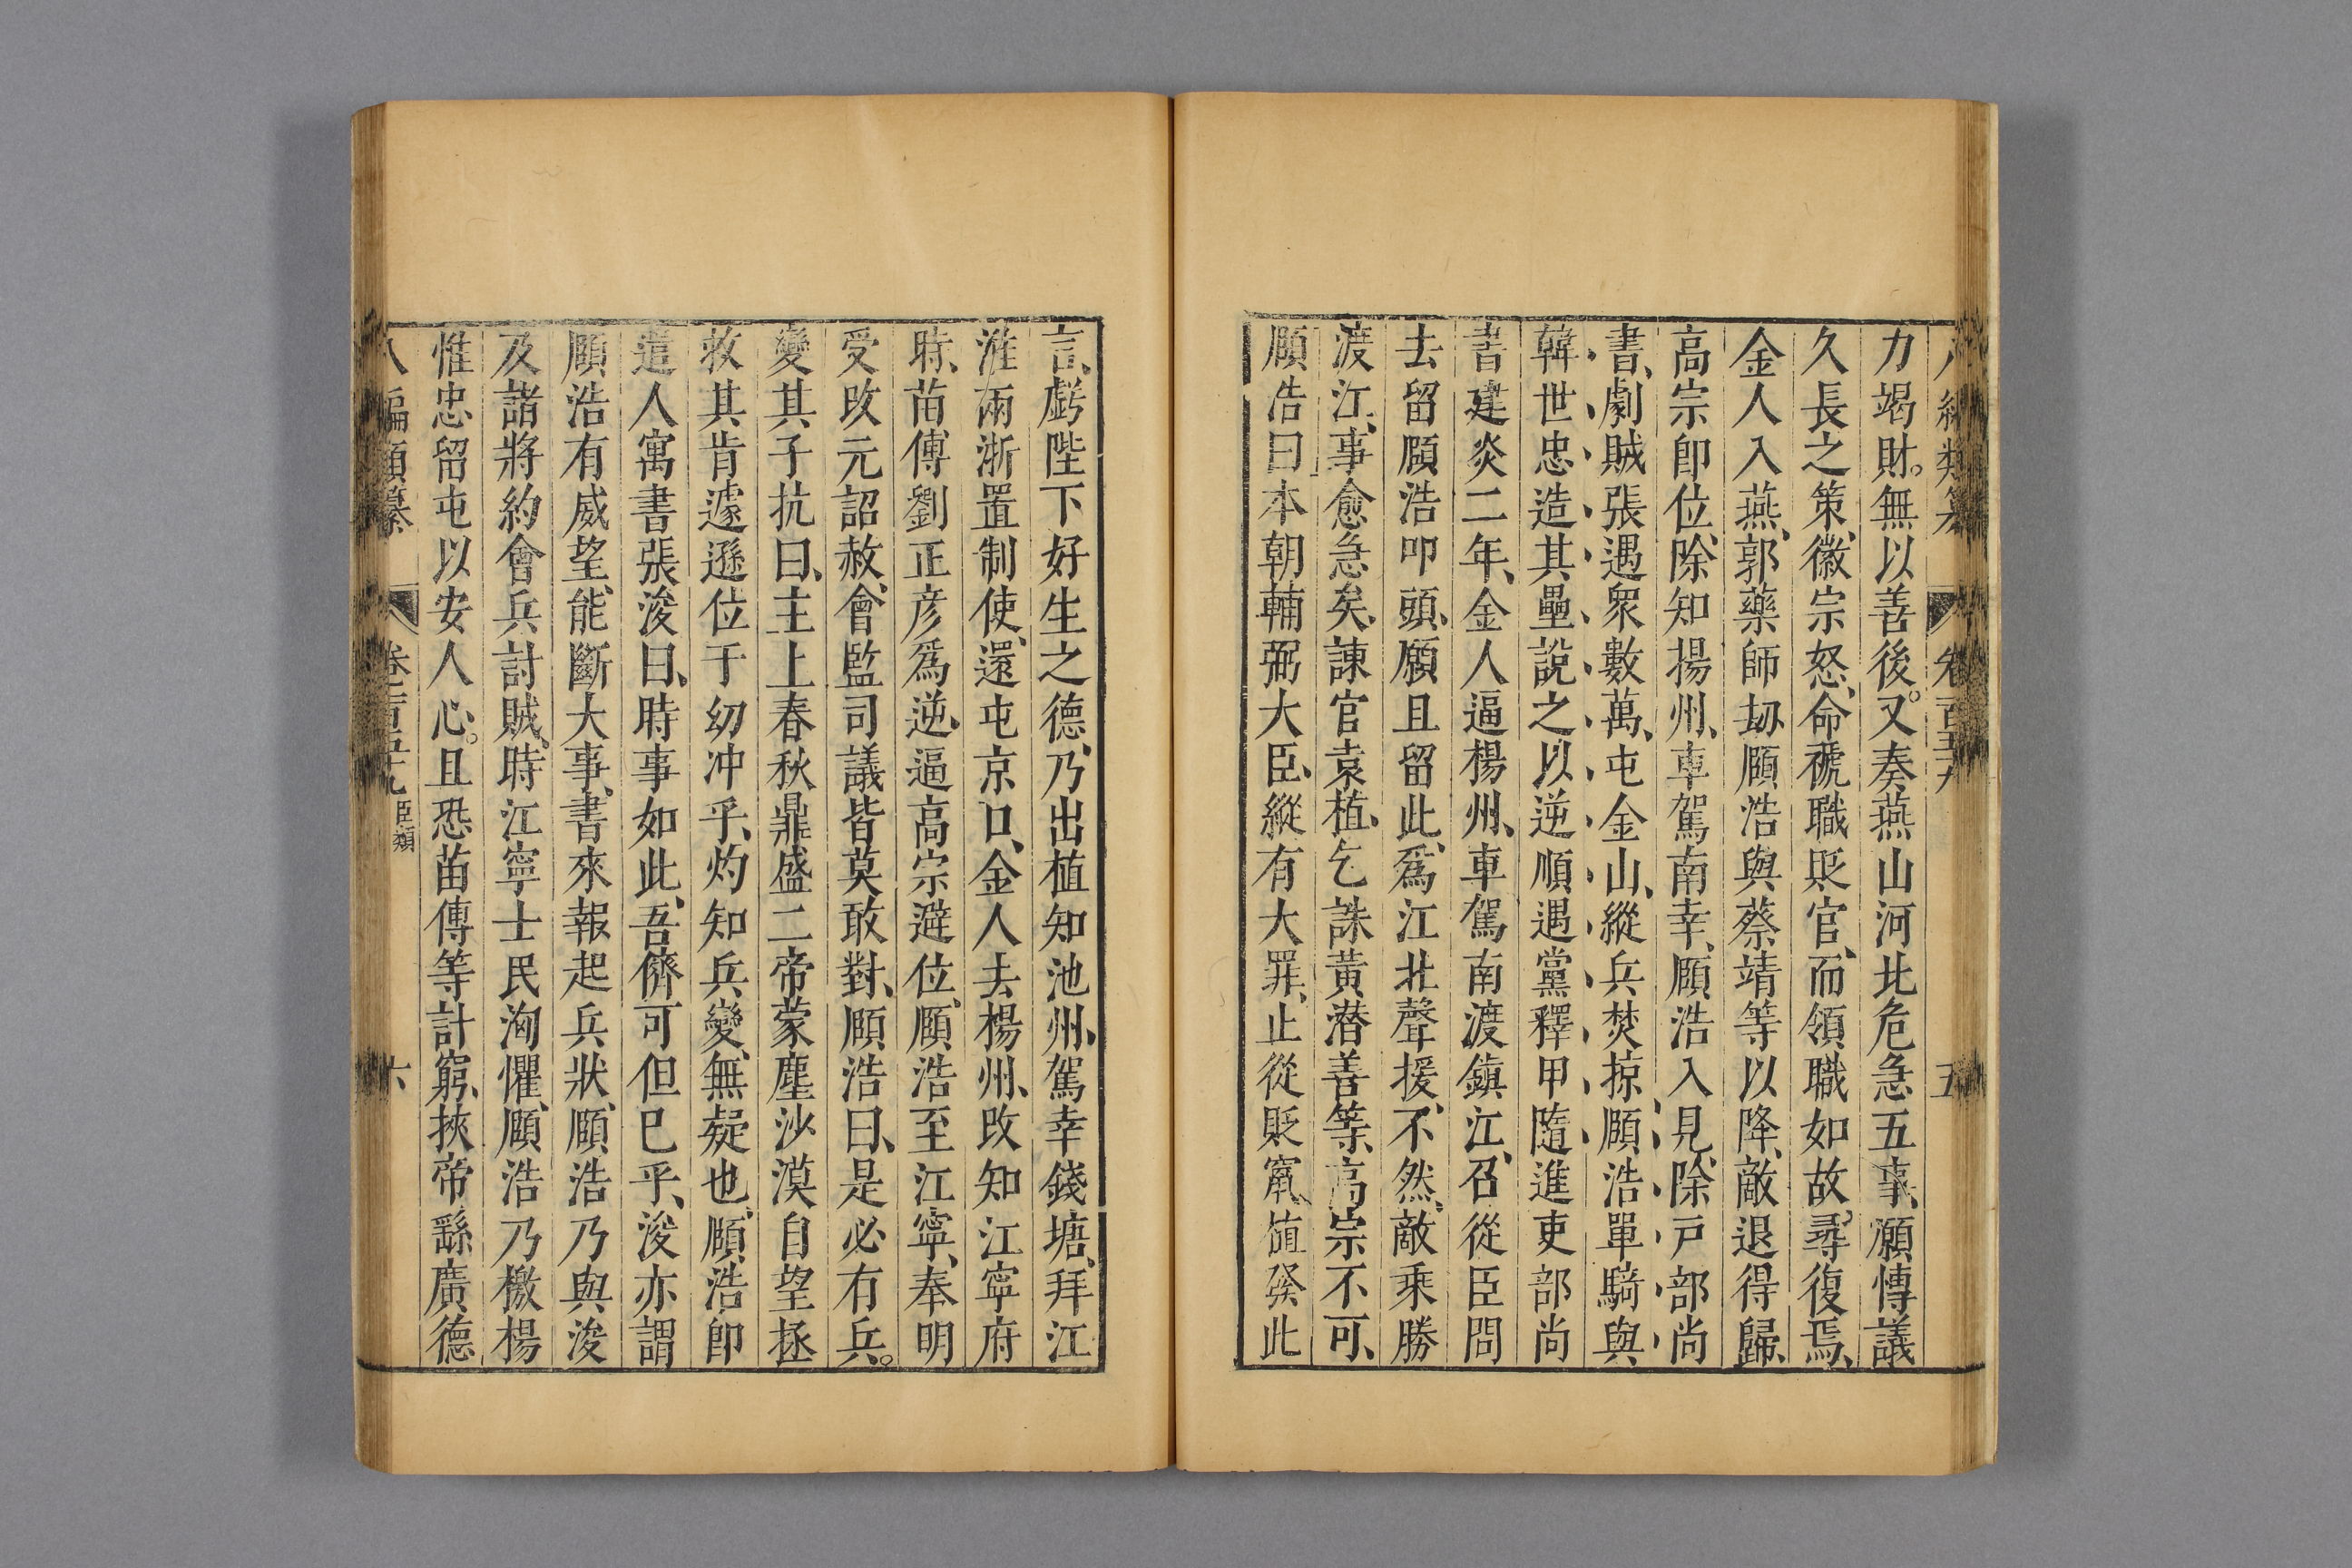 八編類纂 卷百五十九 五
力竭財。無以善後。又奏燕山河北危急五事、願愽議
久長之策、徽宗怒、命褫職貶官、而領職如故、尋復焉、
金人入燕、郭藥師刼頤浩與蔡靖等以降、敵退得歸、
高宗卽位、除知揚州、車駕南幸、頤浩入見、除戸部尚
書、劇賊張遇衆數萬、屯金山、縱兵焚掠、頤浩單騎與
韓世忠造其壘、說之以逆順、遇黨釋甲、隨進吏部尚
書建炎二年、金人逼楊州、車駕南渡鎮江、召從臣問
去留頤浩叩頭、願且留此、爲江北聲援、不然、敵乘勝
渡江、事愈急矣、諫官袁植、乞誅黃潛善等、高宗不可、
頤浩曰本朝輔弼大臣、縱有大罪、止從貶竄、植發此
言、虧陛下好生之德、乃出植知池州、駕幸錢塘、拜江
淮兩浙置制使、還屯京口、金人去楊州、改知江寧府
時、苗傳劉正彦爲逆、逼高宗避位、頤浩至江寧、奉明
受改元詔赦、會監司議皆莫敢對、頤浩曰、是必有兵。
變其子抗曰、主上春秋鼎盛二帝蒙塵沙漠自望拯
救其肯遽遜位于幼冲乎、灼知兵變、無疑也、頤浩卽
遣人寓書張浚曰、時事如此、吾儕可但巳乎、浚亦謂
頤浩有威望、能斷大事、書來報起兵狀、頤浩乃與浚
及諸將約會兵討賊、時江寧士民洶懼、頤浩乃檄楊
惟忠留屯以安人心。且恐苗傳等計窮、挾帝繇廣德
八編類纂 卷百五十九 臣類 六